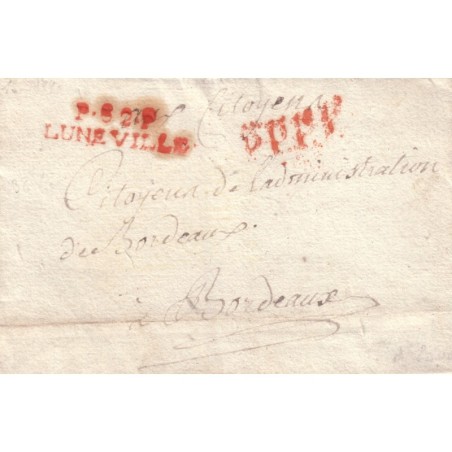 P.82.P
LUNEVILLE
aux Citoyens
Citoyens de l'administration
de Bordeaux.
à Bordeaux